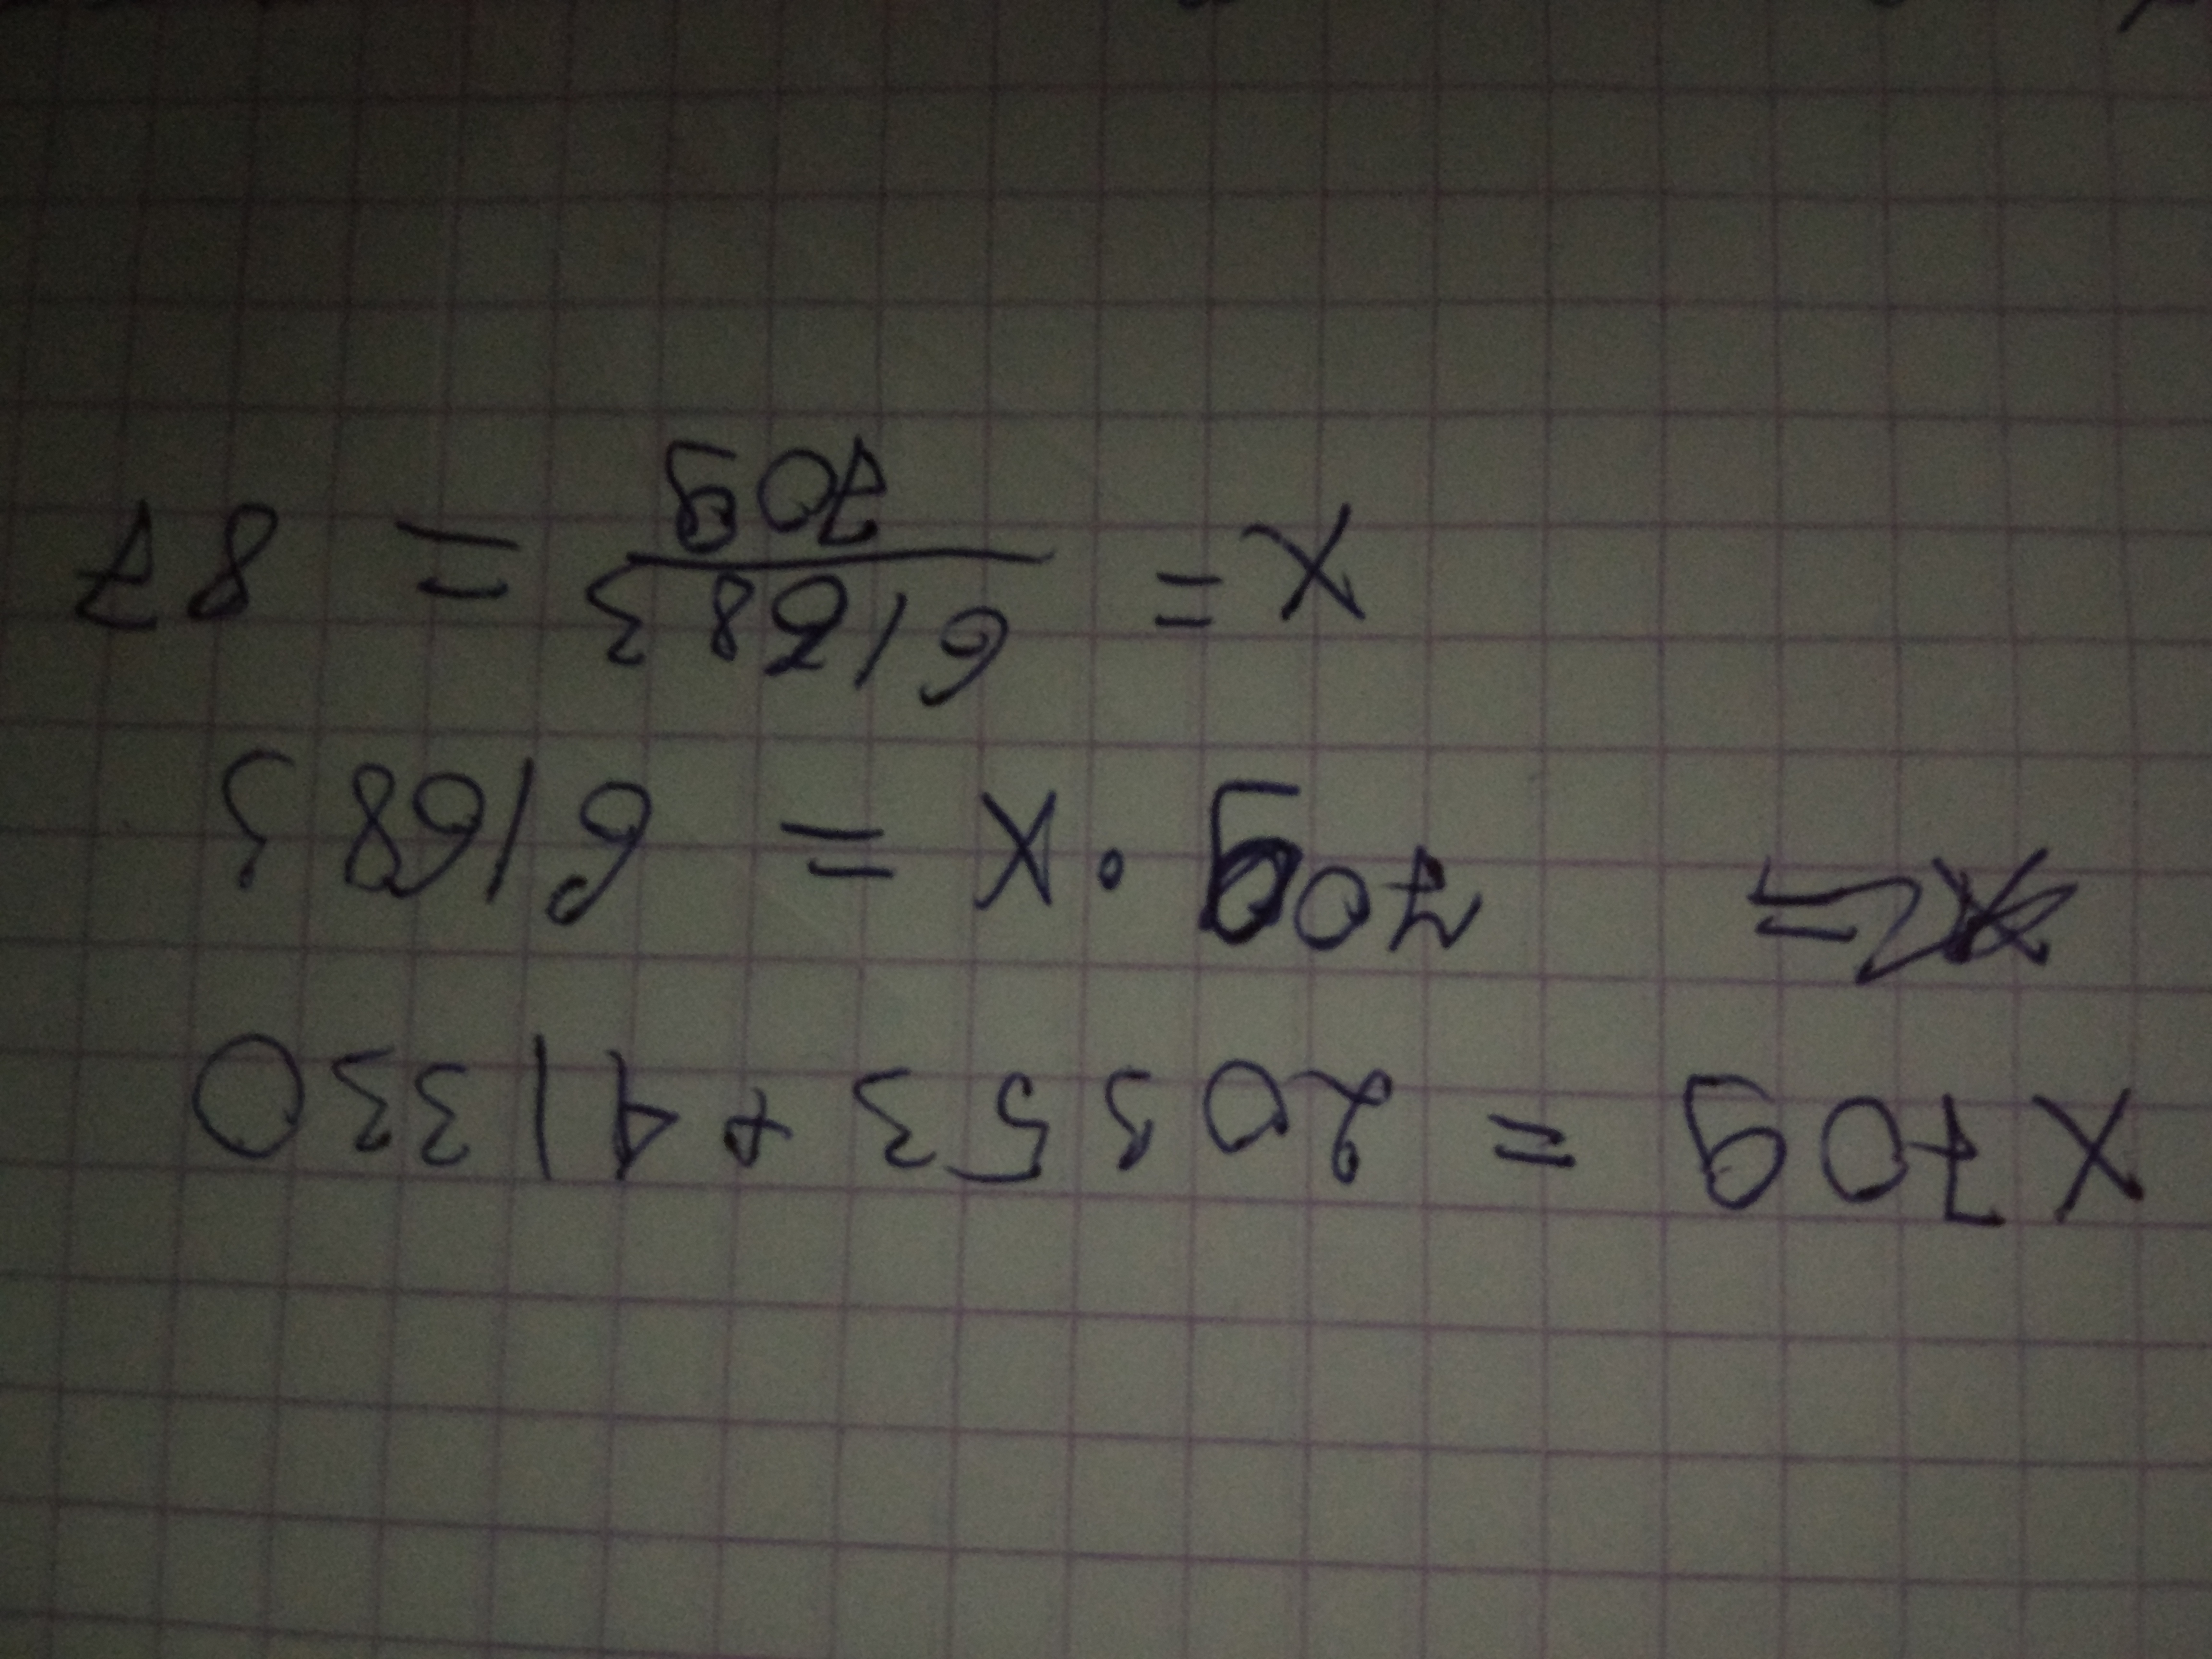 X709 = 20353+41330
709 · X = 61683
X = 61683/709 = 87